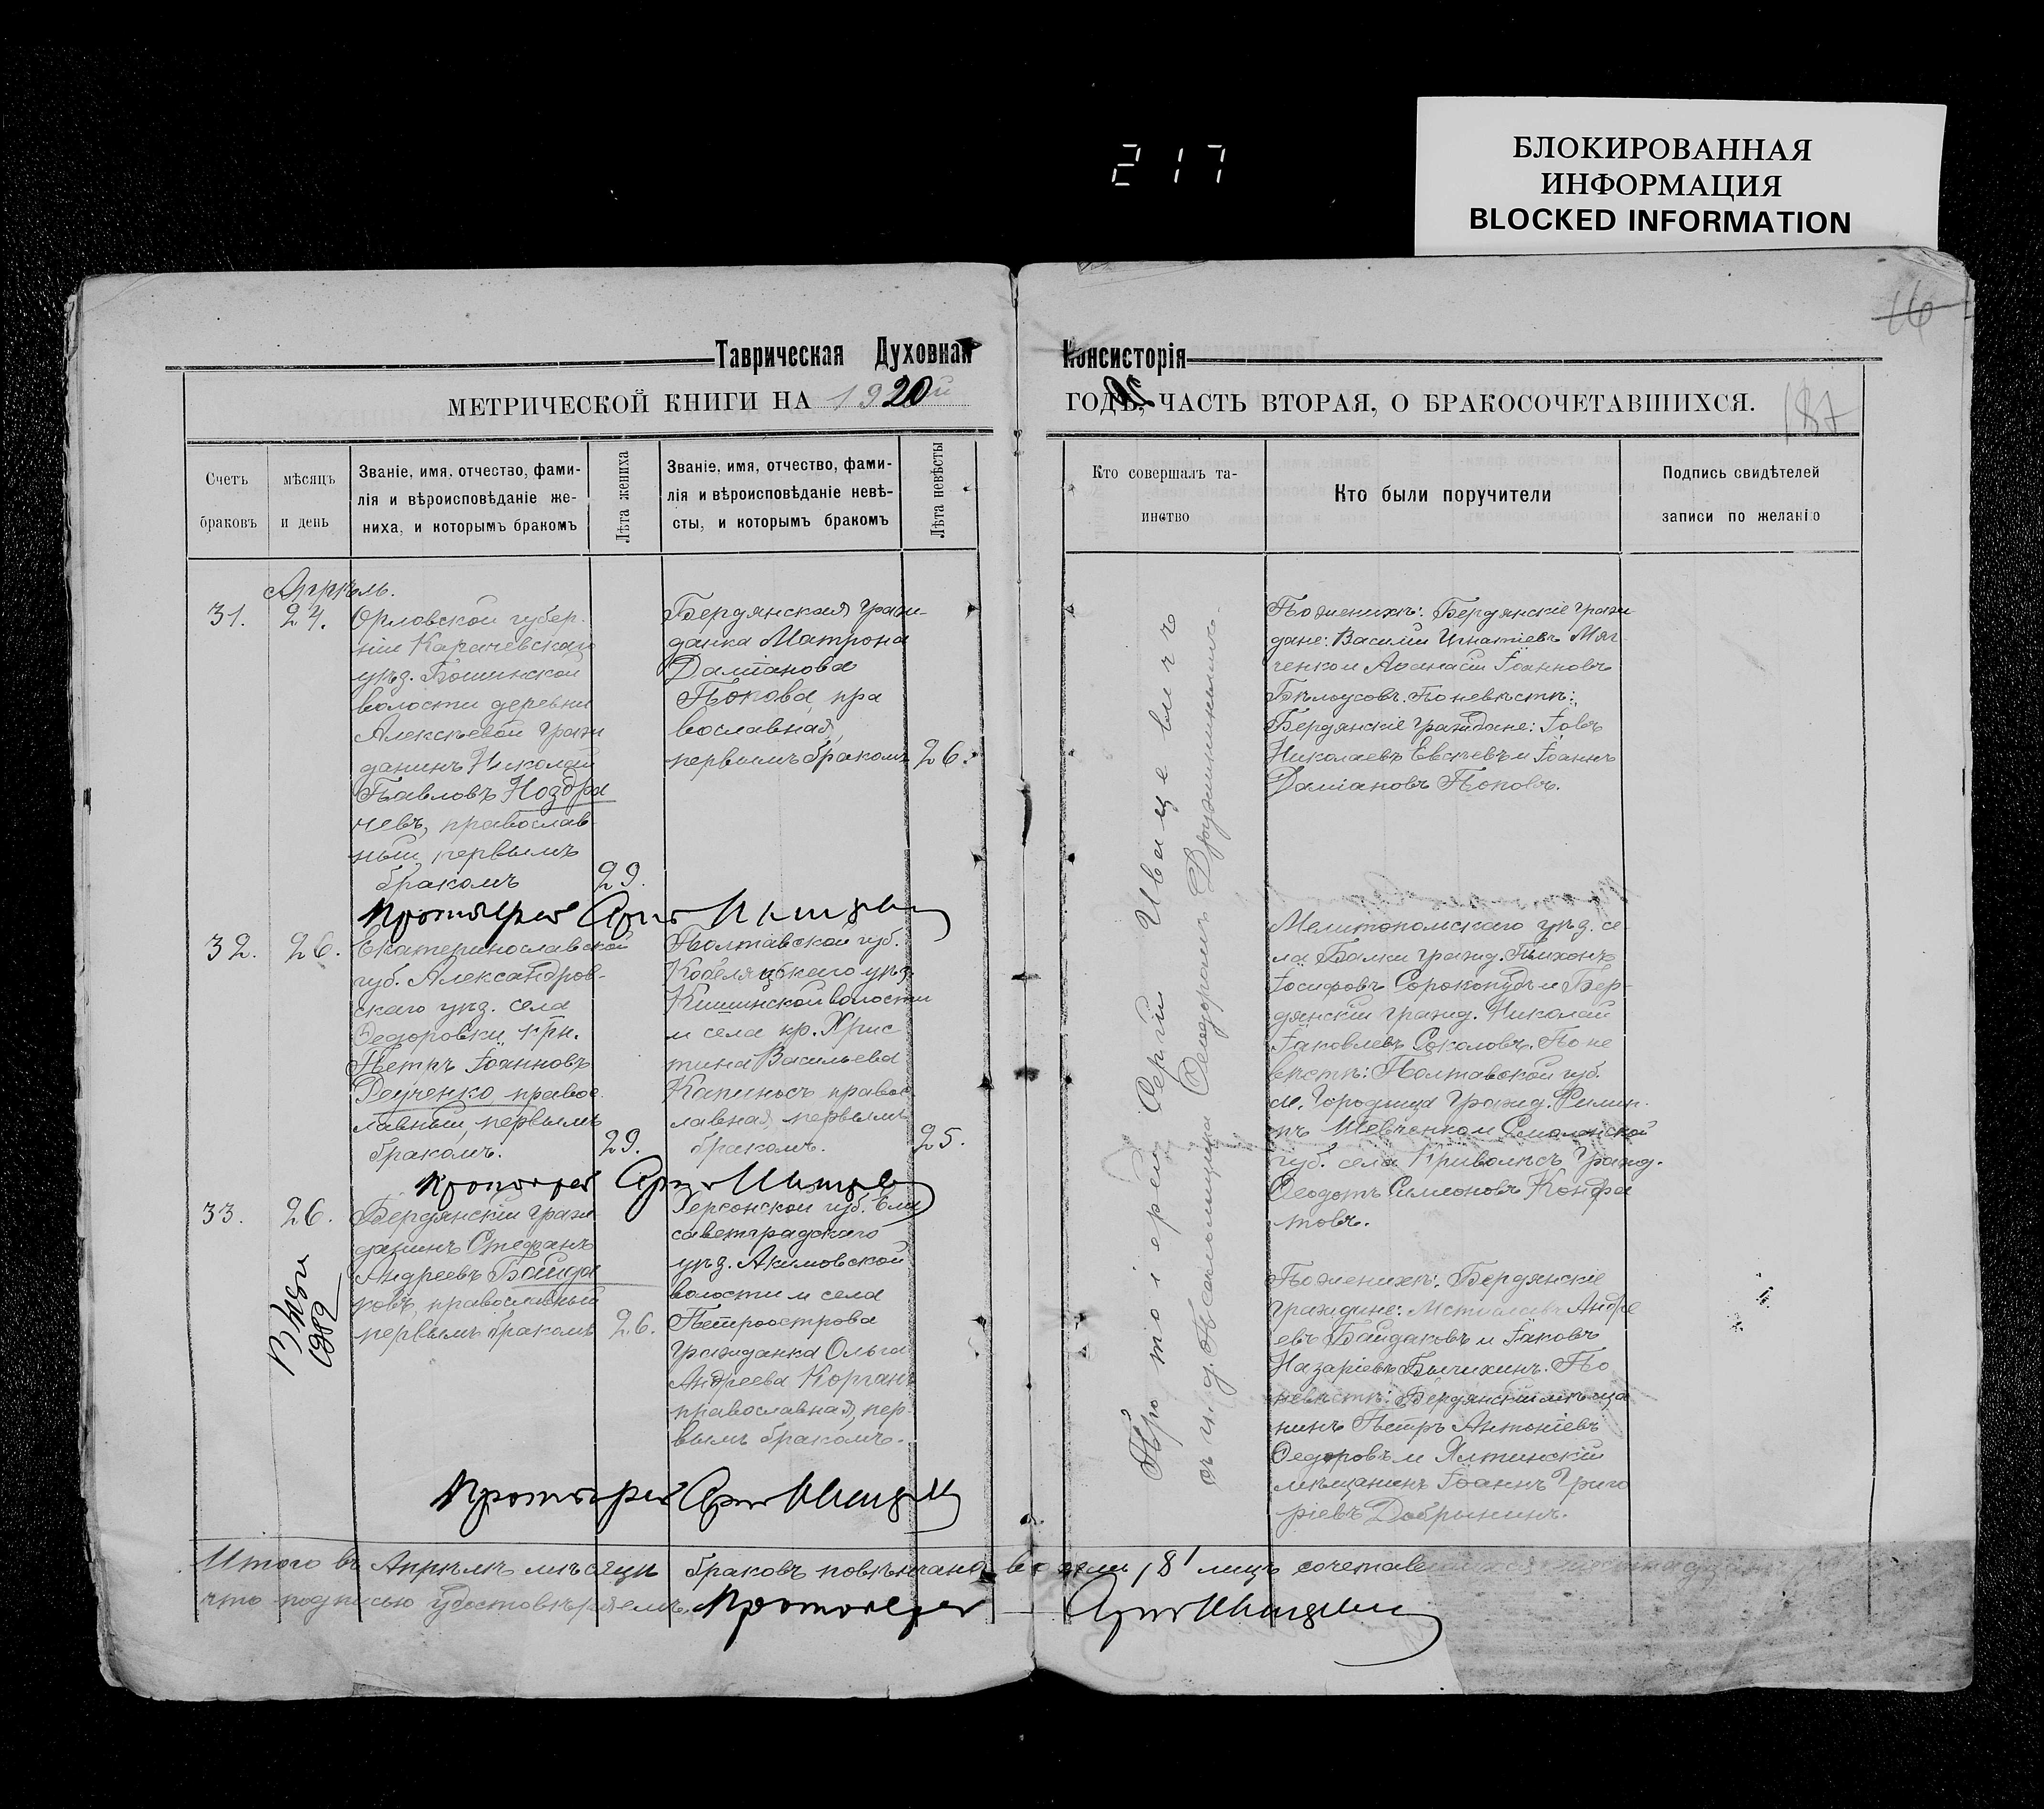 БЛОКИРОВАННАЯ
ИНФОРМАЦИЯ
BLOCKED INFORMATION
217
16
187
Таврическая Духовная Консисторія
МЕТРИЧЕСКОЙ КНИГИ НА 1920й ГОДЪ, ЧАСТЬ ВТОРАЯ, О БРАКОСОЧЕТАВШИХСЯ.
Счетъ
браковъ
мѣсяцъ
и день
Званіе, имя, отчество, фами-
лія и вѣроисповѣданіе же-
ниха, и которымъ бракомъ
Лѣта жениха
Званіе, имя, отчество, фами-
лія и вѣроисповѣданіе невѣ-
сты, и которымъ бракомъ
Лѣта невѣсты
Кто совершалъ та-
инство
Кто были поручители
Подпись свидѣтелей
записи по желанію
Апрѣль.
31.
24.
Орловской губер.
ніи Карачевскаго
уѣзд. Бошинской
волости деревни
Алексѣевой граж
данинъ Николай
ПавловъНоздра
чевъ, православ
ный, первымъ
бракомъ
29.
Бердянская граж-
данка Матрона
Даміанова
Попова, пра
вославная,
первымъ бракомъ
26.
По женихѣ: Бердянскіе граж
дане: Василій Игнатіевъ Мяг
ченко и Аѳанасій Іоанновъ
Бѣлоусовъ. По невѣстѣ:
Бердянскіе граждане: Іовъ
Николаевъ Евсѣевъ и Іоаннъ
Даміановъ Поповъ.
Протоіерей Сергій Иващевичъ
съ и. д. псаломщика Ѳеодоромъ Дружининымъ.
Протоіерей Сергій Иващевичъ
32.
26.
Екатеринославской
губ. Александров-
скаго уѣзд. села
Ѳедоровки крн.
Петръ Іоанновъ
Деученко, правос
лавный, первымъ
бракомъ.
29.
Полтавской губ.
Кобелякскаго уѣзд
Кишинской волости
и села кр. Хрис
тина Васильева
Капиносъ правос
лавная, первымъ
бракомъ.
25.
Мелитопольскаго уѣзд. се
ла Балки гражд. Тихонъ
Іосифовъ Сорокопудъ и Бер-
дянскій гражд. Николай
Іаковлевъ Соколовъ. По не
вѣстѣ: Полтавской губ.
м. Городища гражд. Филип-
пъ Шевченко и Смоленской
губ. села Криволѣсъ гражд.
Ѳеодотъ Симеоновъ Кондра
товъ.
Протоіерей Сергій Иващевичъ
33.
26.
Бердянскій граж
данинъ Стефанъ
Андреевъ Байда
ковъ, православный
первымъ бракомъ
26.
Херсонской губ. Ели
саветградскаго
уѣзд. Акимовской
волости и села
Петроострова
гражданка Ольга
Андреева Корганъ
православная, пер
вымъ бракомъ.
По женихѣ: Бердянскіе
граждане: Мстиславъ Андре
евъ Байдаковъ и Іаковъ
Назаріевъ Бычихинъ. По
невѣстѣ: Бердянскій мѣща
нинъ Петръ Антоніевъ
Ѳедоровъ и Ялтинскій
мѣщанинъ Іоаннъ Григо
ріевъ Добрынинъ.
Протоіерей Сергій Иващевичъ
Итого въ Апрѣлѣ мѣсяцѣ браковъ повѣнчано 18 лицъ сочетав
что подписью удостовѣряемъ. Протоіерей Сергій Иващевичъ